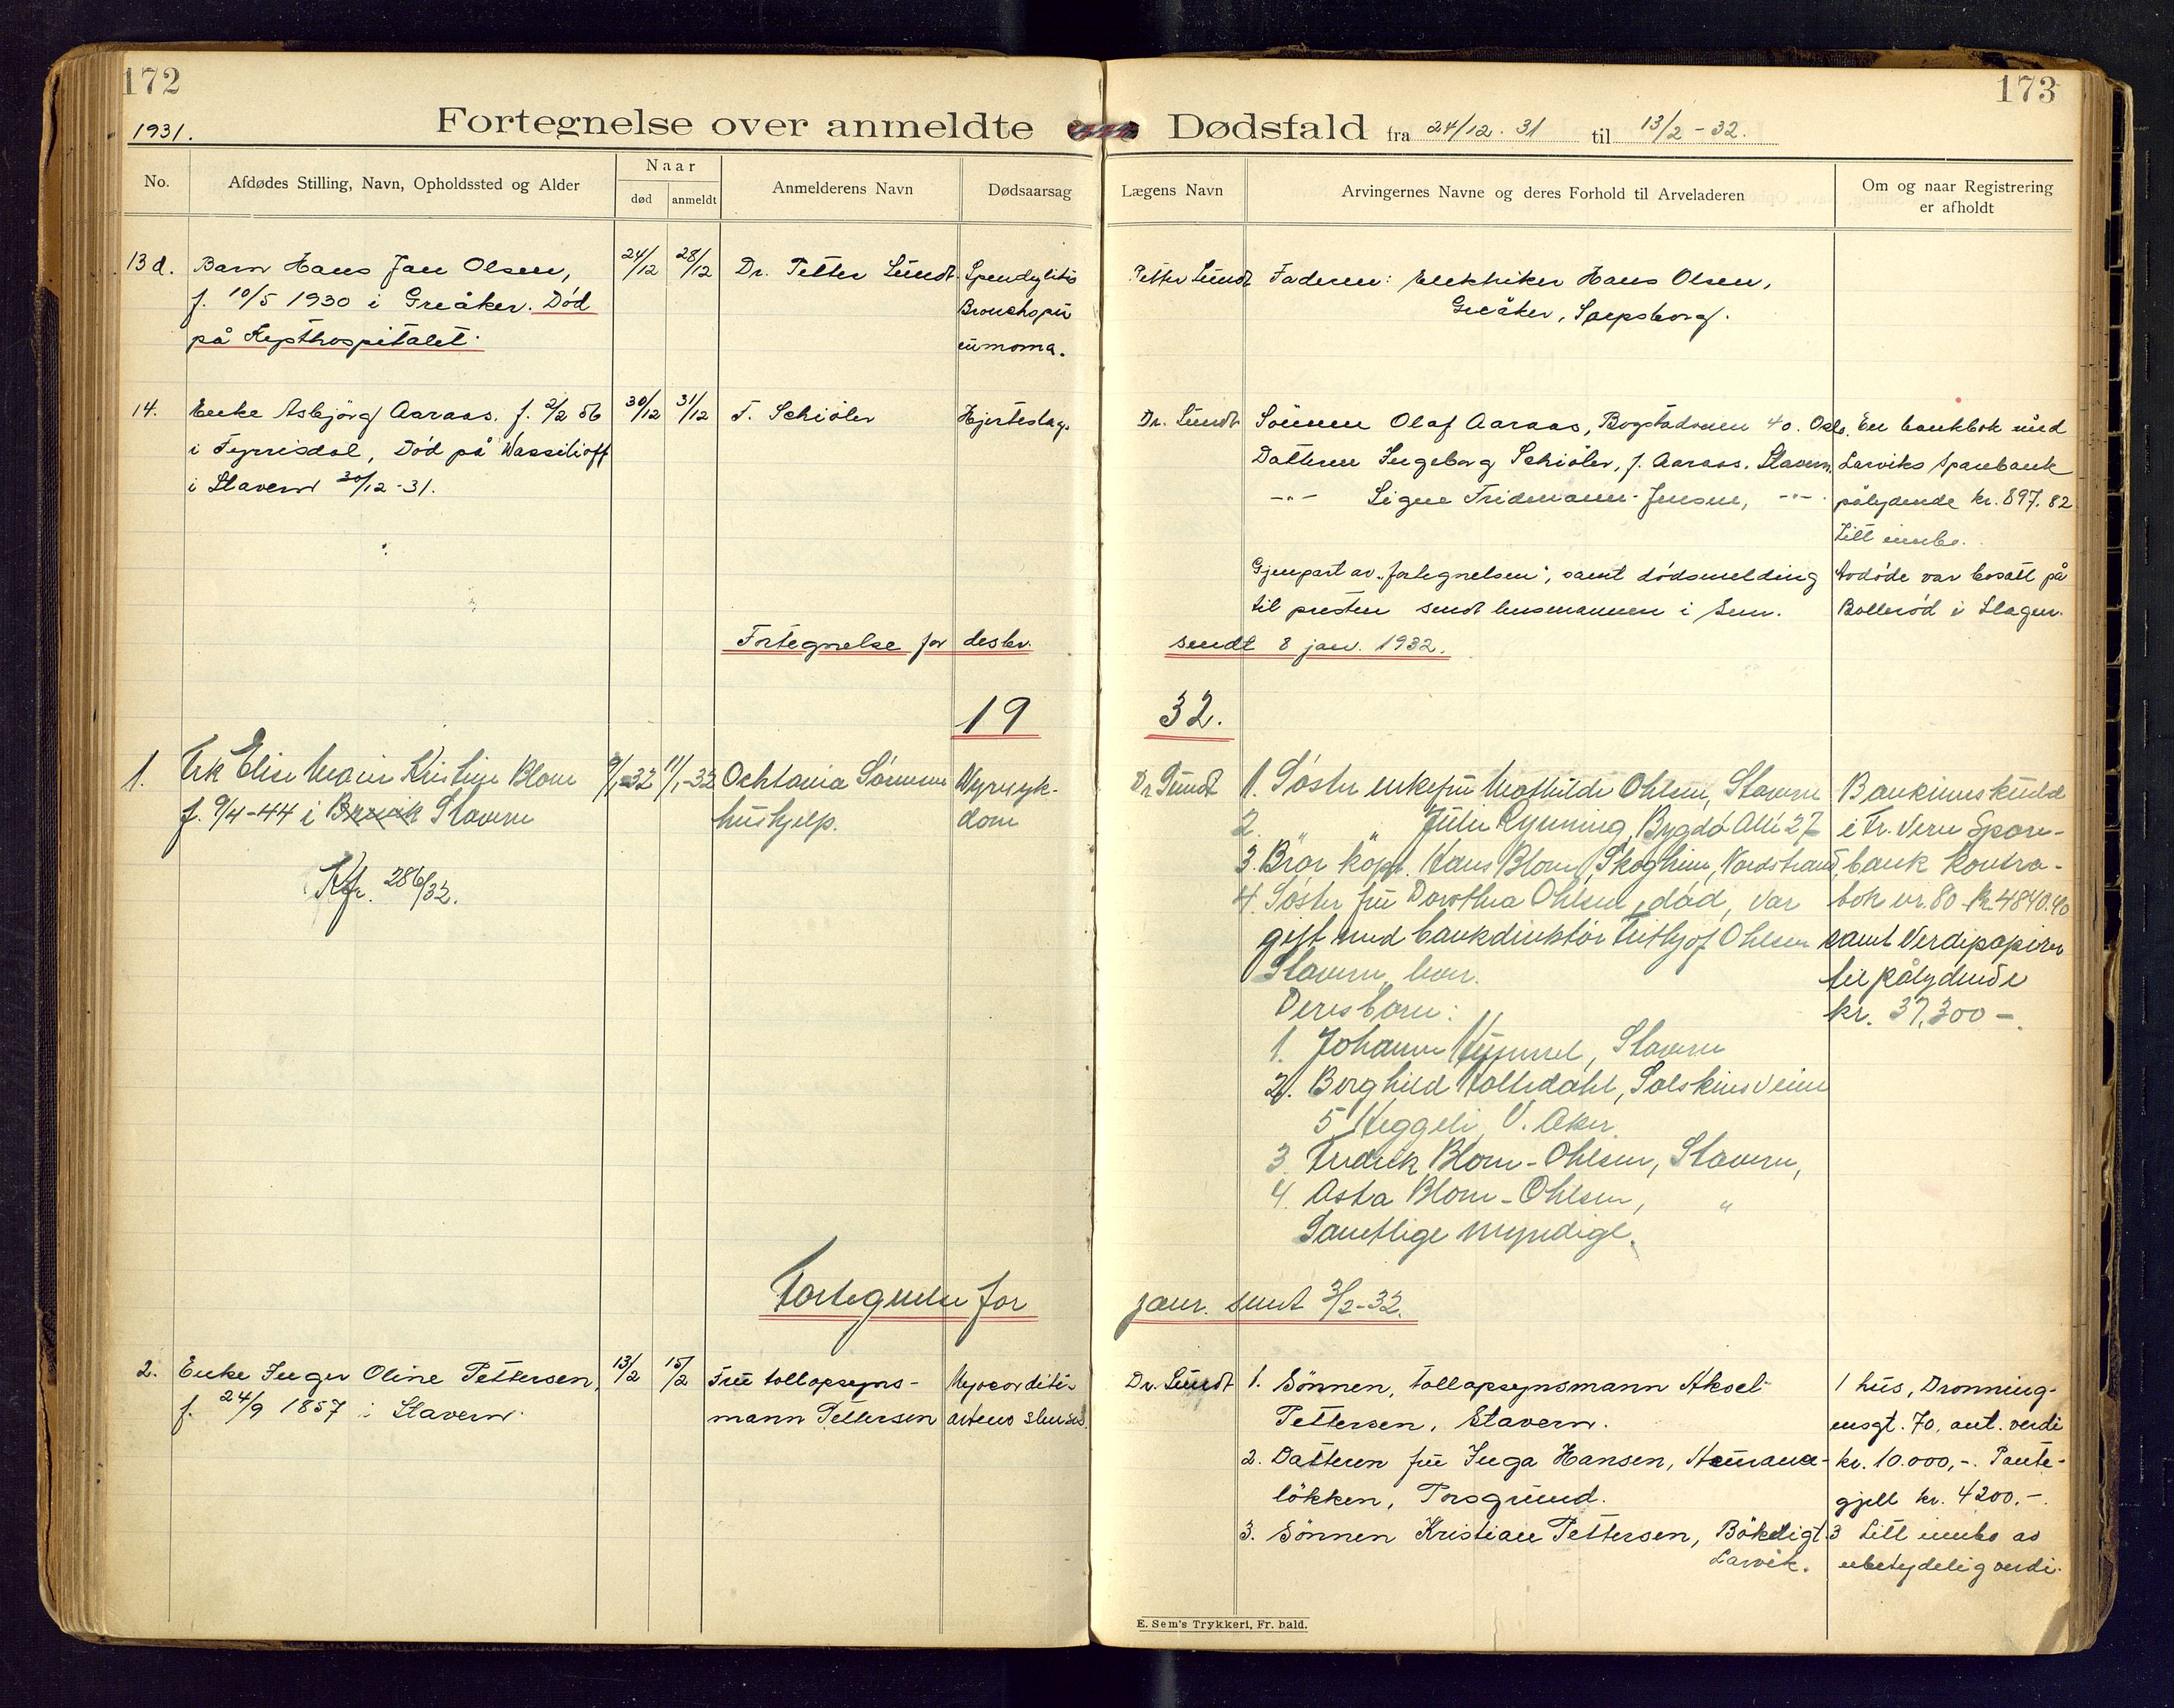 172
1931.
Fortegnelse over anmeldte
No.
Afdødes Stilling, Navn, Opholdssted og Alder
Naar
død
anmeldt
Anmelderens Navn
Dødsaarsag
13d. Barn Hans Jan Olsen, 24/12 28/12 Dr. Petter Lundt. Spondylitis
f. 10/5 1930 i Greåker. Død Bronchopn
på Kysthospitalet. eumonia.
14. Enke Asbjörg Aaraas. f. 2/2 56 30/12 31/12 T. Schiöler Hjerteslag.
i Fyrrisdal, Död på Wassilioff
i Stavern 30/12-31.
Fortegnelse for desbr.
19
1. Frk Elise Marie Kristine Blom 9/1-32 11/1-32 Ochtavia Sörensen Nyresyk-
f. 9/4-44 i Brevik Stavern hushjelp. dom
Kfr. 286/32.
Fortegnelse for
2. Enke Inger Oline Pettersen, 13/2 15/2 Frü tollopsyns- Myocarditis
f. 24/9 1857 i Stavern. mann Pettersen
173
Dødsfald fra 24/12.31 til 13/2-32.
Lægens Navn
Arvingernes Navne og deres Forhold til Arveladeren
Om og naar Registrering
er afholdt
Petter Lundt Faderen: elektriker Hans Olsen,
Greåker, Sarpsborg.
Dr. Lundt Sönnen Olaf Aaraas, Bogstadveien 40. Oslo. En bankbok med
Datteren Ingeborg Schiöler, f. Aaraas. Stavern. Larviks Sparebank
-"- Signe Tridemann-Jensen, -"- pålydende kr. 897.82
Litt innbo.
Gjenpart av "fortegnelsen", samt dödsmelding Avdöde var bosatt på
til presten sendt lensmannen i Sem. Bolleröd i Slagen.
sendt 8 jan. 1932.
32.
Dr Lundt 1. Søster enkefrü Mathilde Ohlsen, Stavern Bankinnskudd
2. " Julie Rynning, Bygdö Allé 27 i Fr. Vern Spare-
3. Bror köpm. Hans Blom, Skogheim, Nordstrand, bank kontra-
4. Søster frü Dorothea Ohlsen, död, var bok nr. 80 kr. 4840.40
gift med bankdirektör Frithjof Ohlsen samt Verdipapirer
Stavern, her. til pålydende
Deres barn: kr. 37,300-.
1. Johanne Hummel, Stavern
2. Borghild Tollesdahl, Solskinsveien
5 Heggeli V. Aker.
3. Fredrik Blom-Ohlsen, Stavern,
4. Asta Blom-Ohlsen, "
Samtlige myndige.
janr. sendt 3/2-32.
Dr. Lundt 1. Sönnen, tollopsynsmann Aksel 1 hus, Dronning-
Pettersen, Stavern. ensgt. 70, ant. verdi
2. Datteren frü Inga Hansen, kr. 10.000,-. Pante-
lökken, Porsgrund. gjell kr. 4200.-.
3. Sönnen Kristian Pettersen, Bökeligt. 3 Litt innbo av
Larvik. ubetydelig verdi.
E. Sem's Trykkeri, Fr. hald.